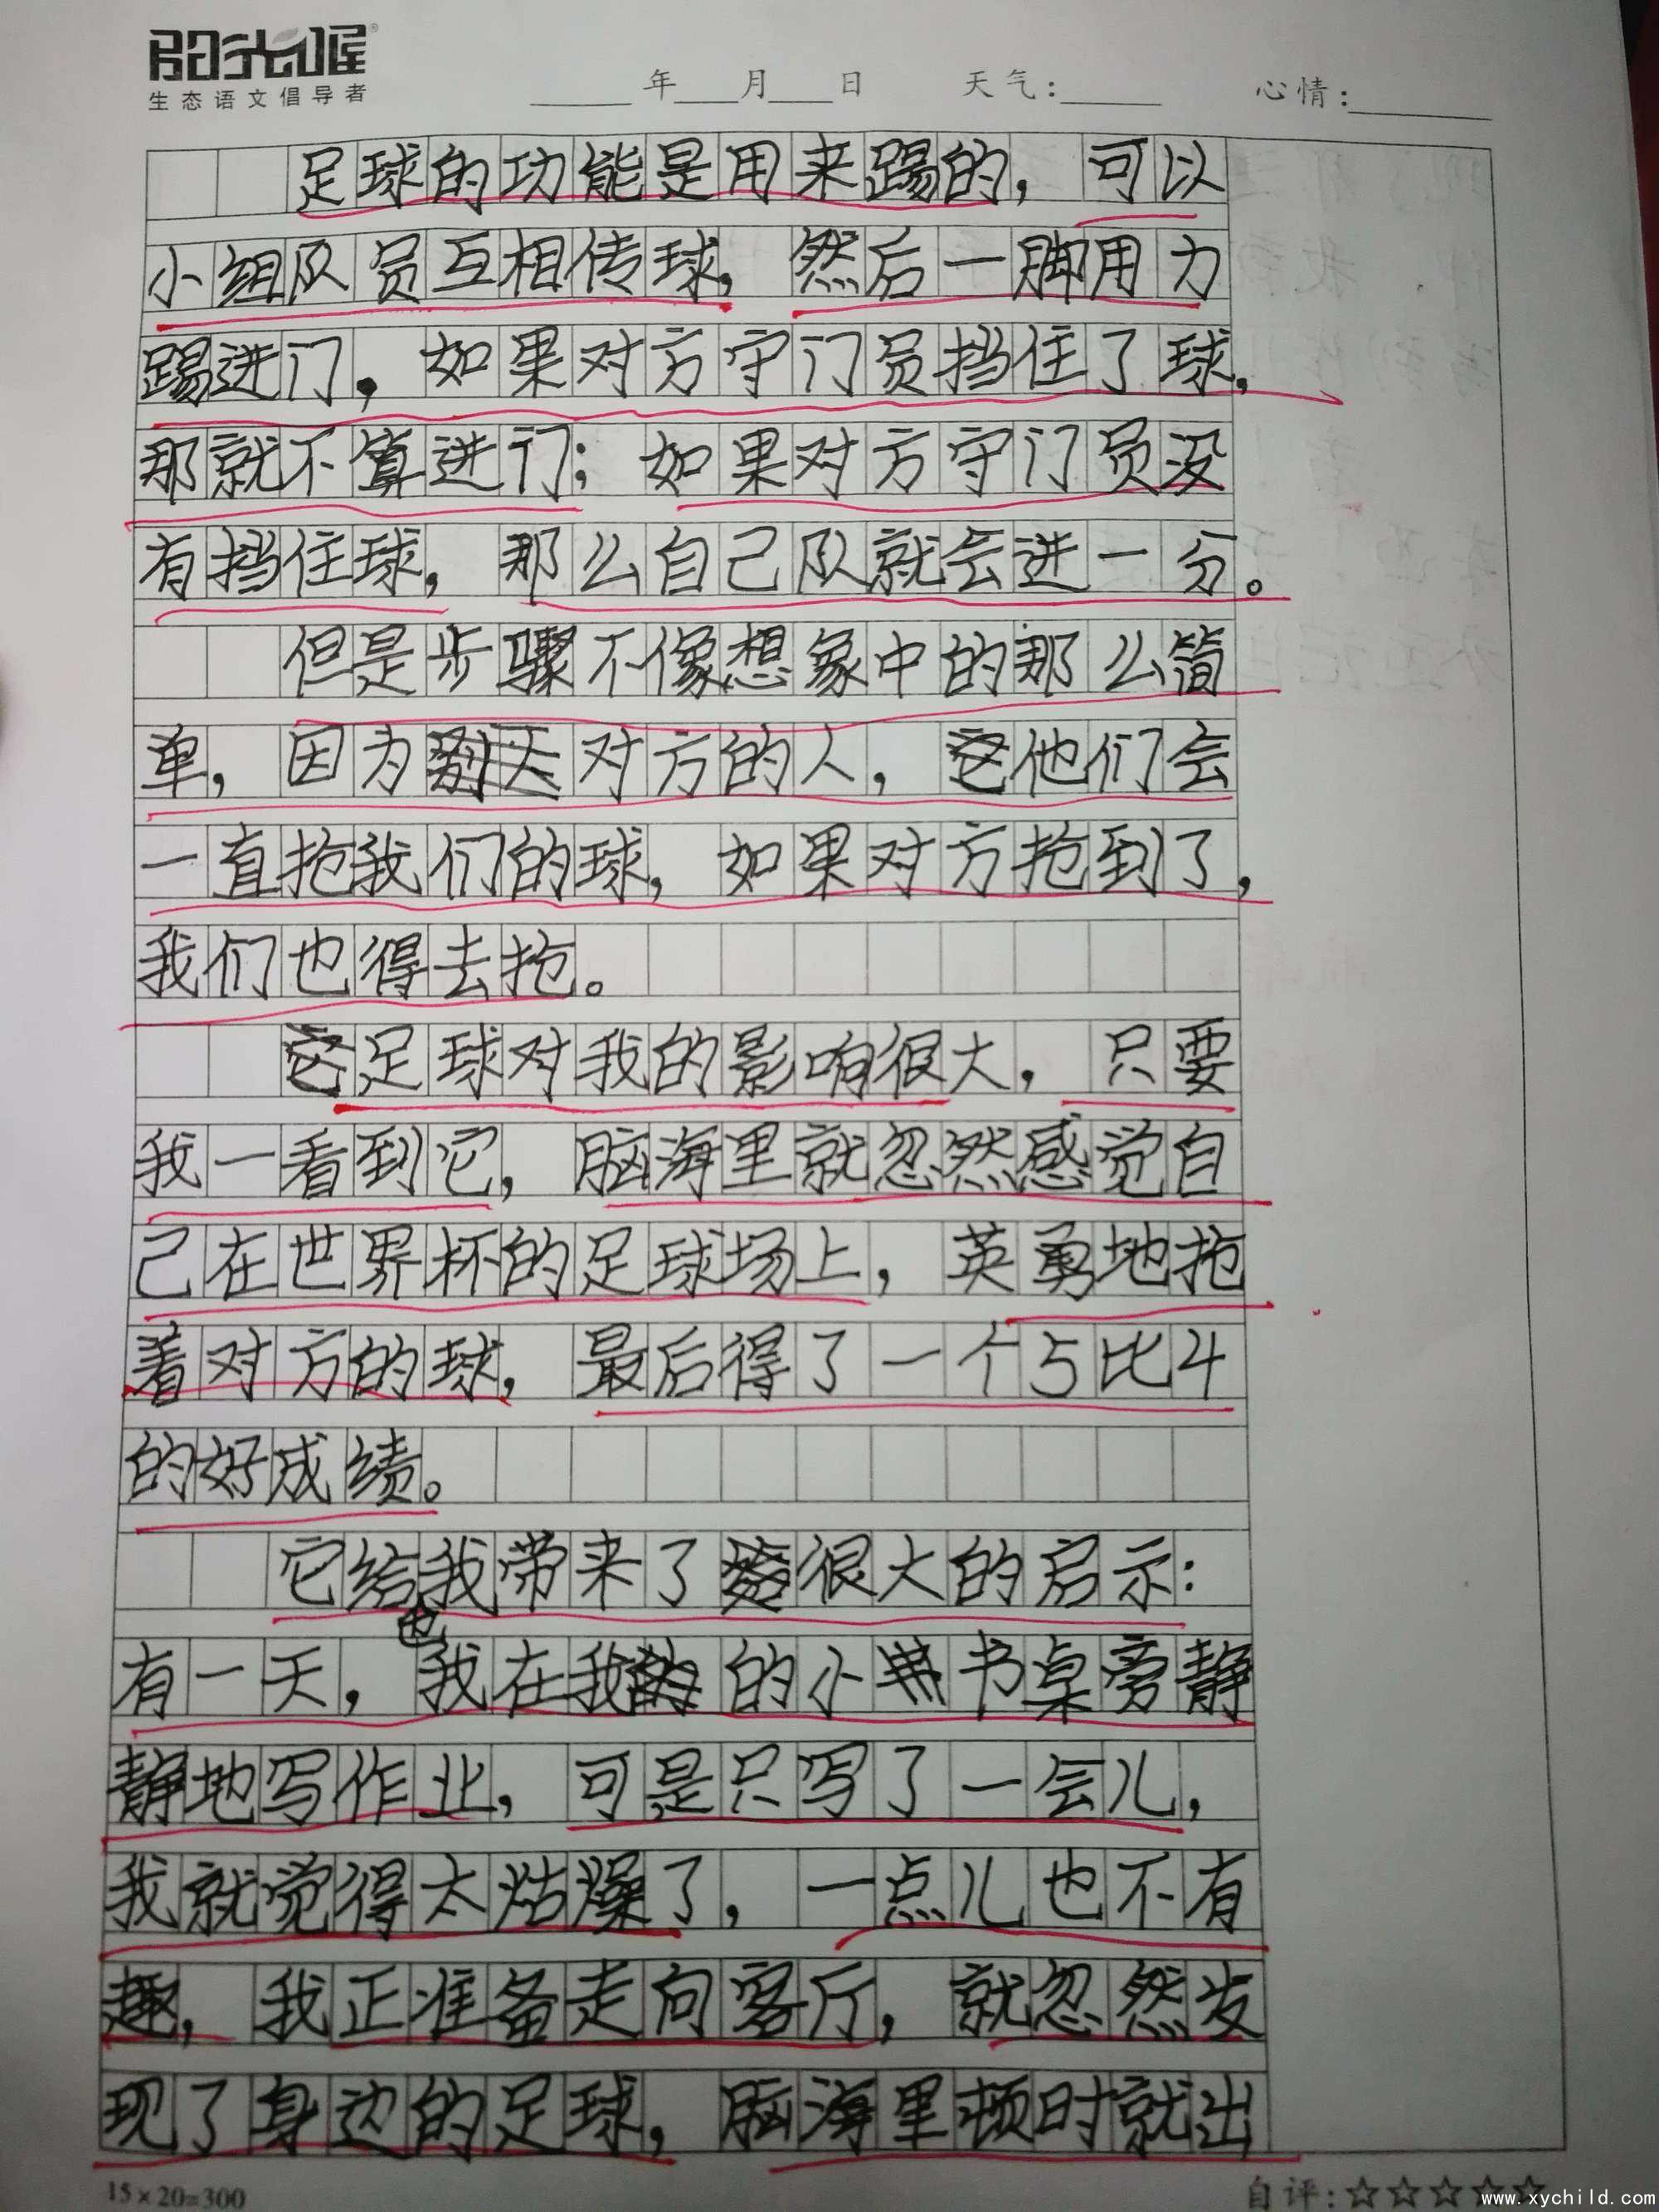 阳光喔
生态语文倡导者
年 月 日 天气: 心情:
足球的功能是用来踢的，可以
小组队员互相传球，然后一脚用力
踢进门，如果对方守门员挡住了球，
那就不算进门；如果对方守门员没
有挡住球，那么自己队就会进一分。
但是步骤不像想象中的那么简
单，因为对方的人，他们会
一直抢我们的球，如果对方抢到了，
我们也得去抢。
足球对我的影响很大，只要
我一看到它，脑海里就忽然感觉自
己在世界杯的足球场上，英勇地抢
着对方的球，最后得了一个5比4
的好成绩。
它给我带来了很大的启示：
也
有一天，我在我的小书桌旁静
静地写作业，可是只写了一会儿，
我就觉得太枯燥了，一点儿也不有
趣，我正准备走向客厅，就忽然发
现了身边的足球，脑海里顿时就出
15×20=300
自评:☆☆☆☆☆
www.xychild.com